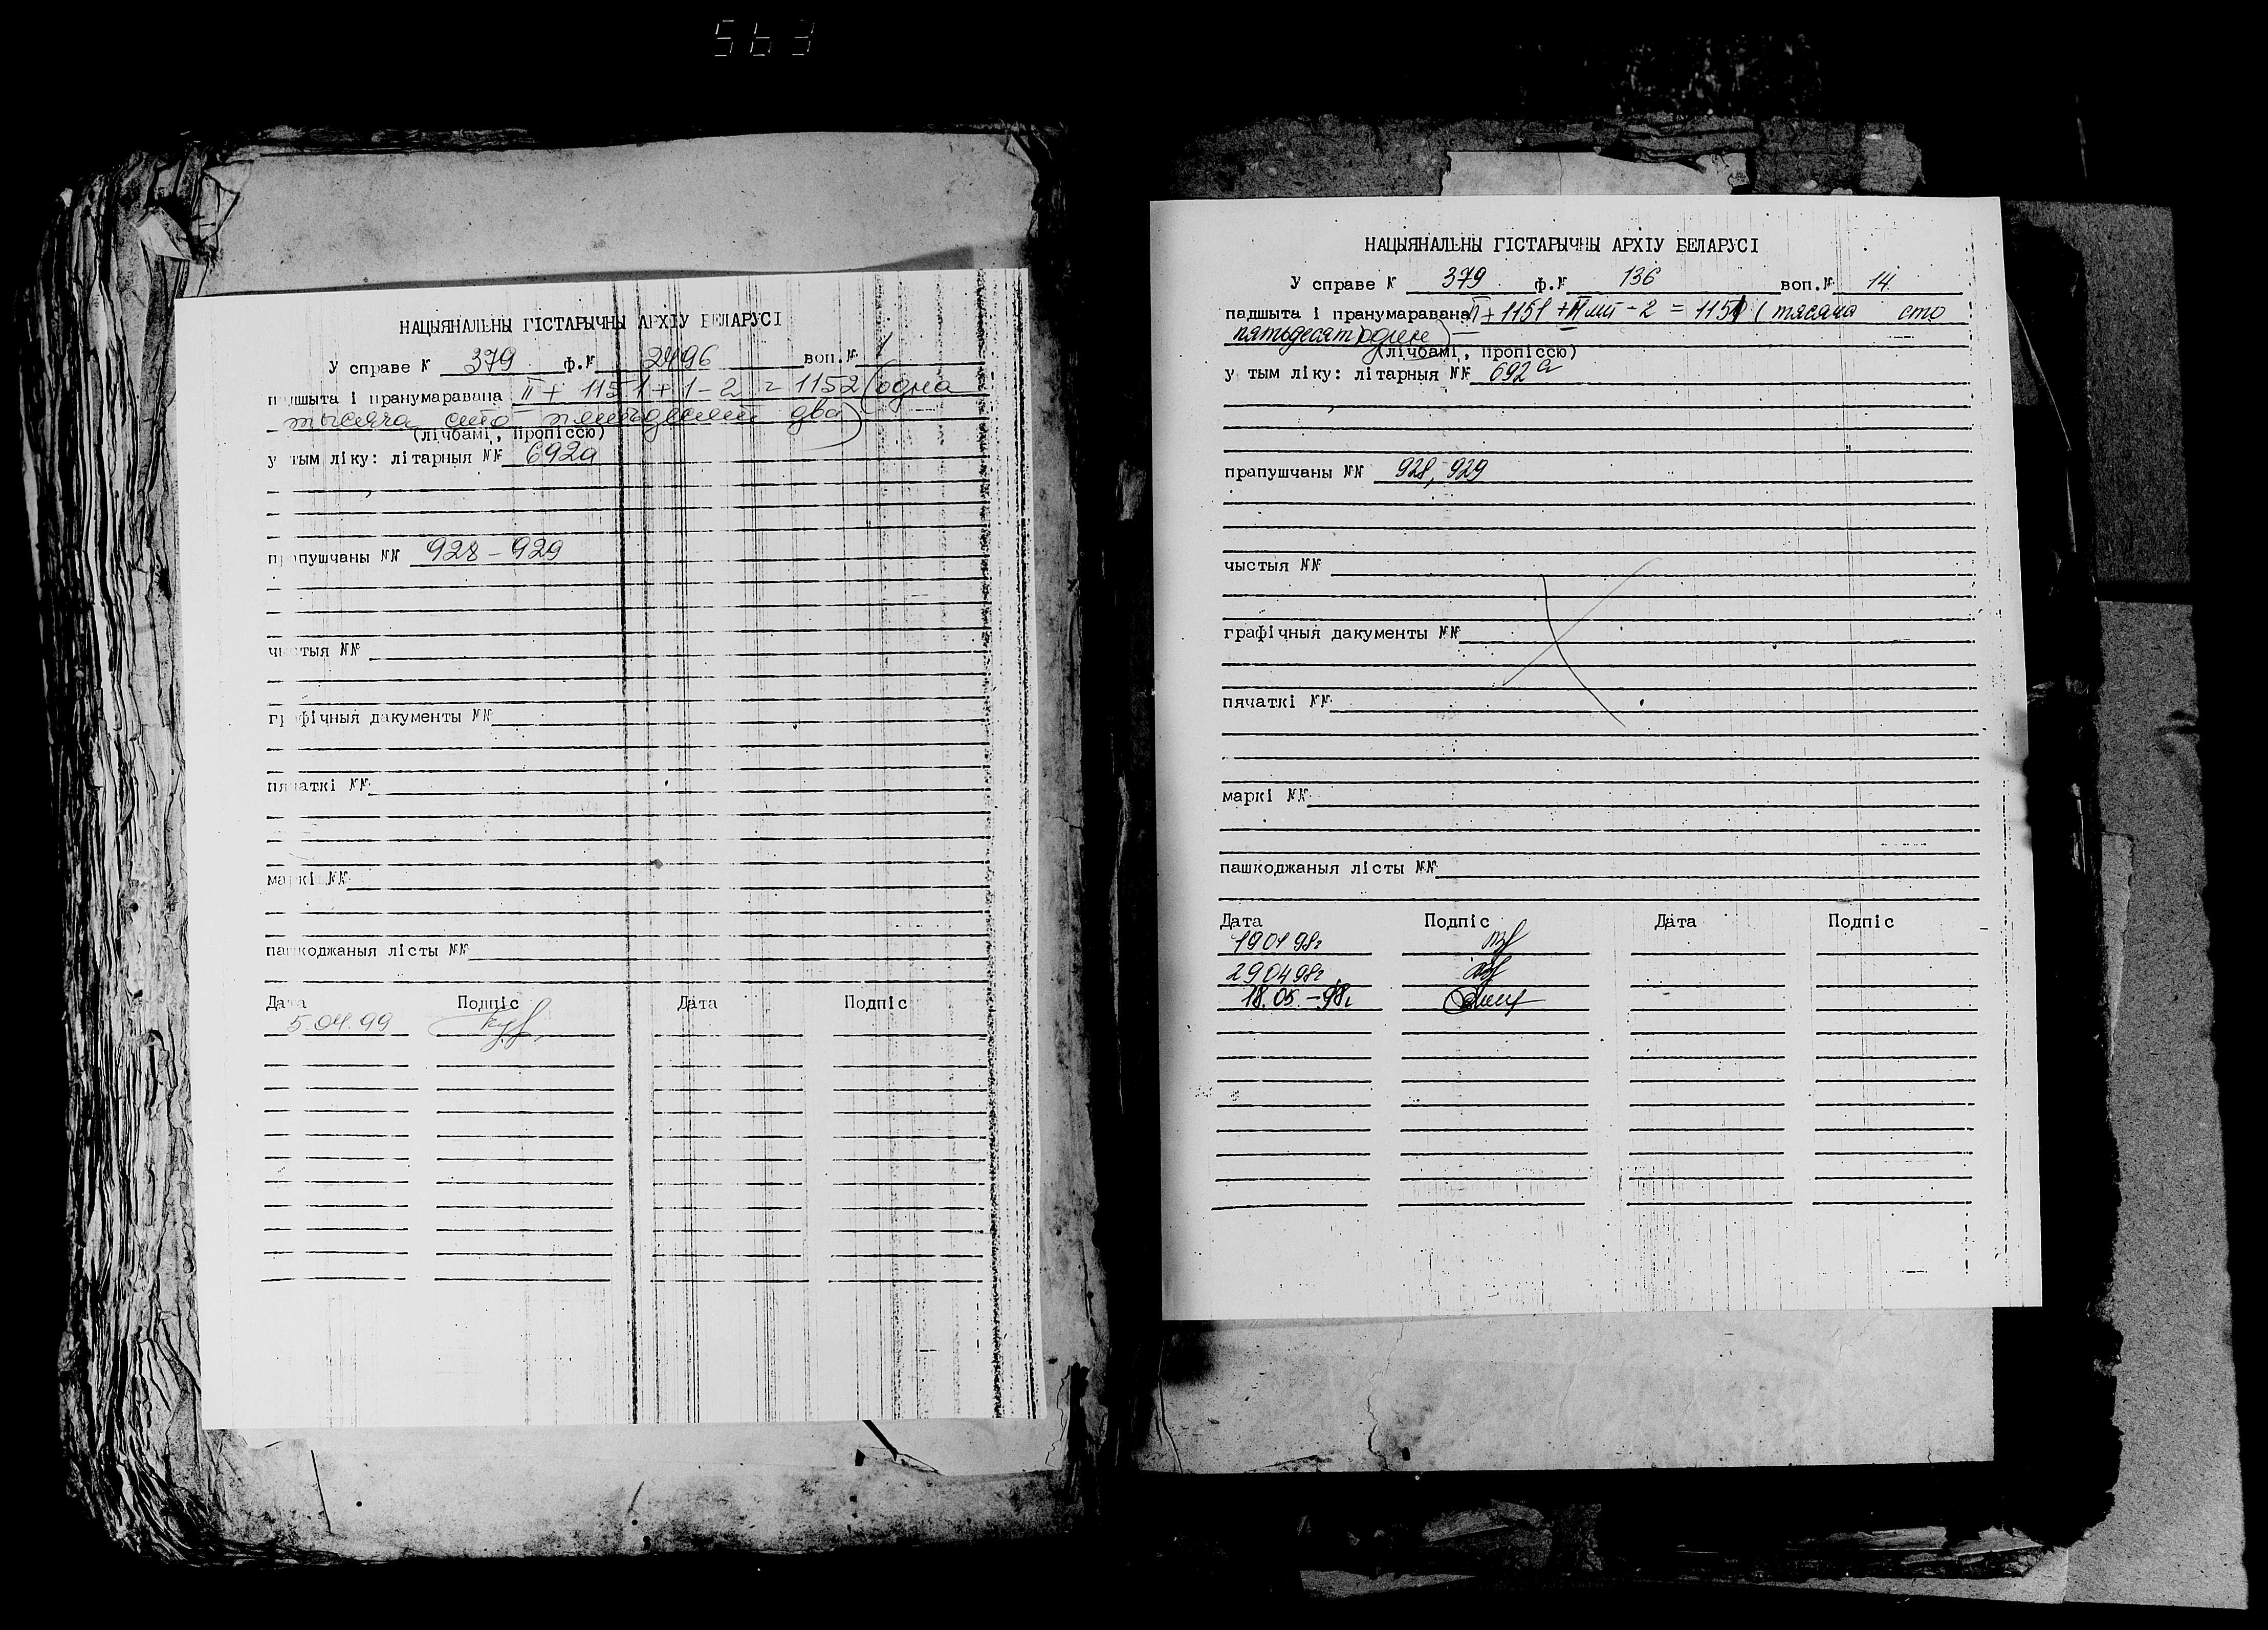 563
НАЦЫЯНАЛЬНЫ ГІСТАРЫЧНЫ АРХІУ БЕЛАРУСІ
У справе № 379 ф.№ 2496 воп.№ 1
падшыта і пранумаравана II + 1151 + 1 - 2 = 1152 (одна
тысяча сто пятьдесят два)
(лічбамі, пропіссю)
у тым ліку: літарныя №№ 692а
прапушчаны №№ 928 - 929
чыстыя №№
графічныя дакументы №№
пячаткі №№
маркі №№
пашкоджаныя лісты №№
Дата Подпіс Дата Подпіс
5.04.99
НАЦЫЯНАЛЬНЫ ГІСТАРЫЧНЫ АРХІУ БЕЛАРУСІ
У справе № 379 ф.№ 136 воп.№ 14
падшыта і пранумаравана + 1151 + - 2 = 1151 (тысяча сто
пятьдесят один)
(лічбамі, пропіссю)
у тым ліку: літарныя №№ 692а
прапушчаны №№ 928, 929
чыстыя №№
графічныя дакументы №№
пячаткі №№
маркі №№
пашкоджаныя лісты №№
Дата Подпіс Дата Подпіс
19 01 98г
29 04 98г
18.05.-98г